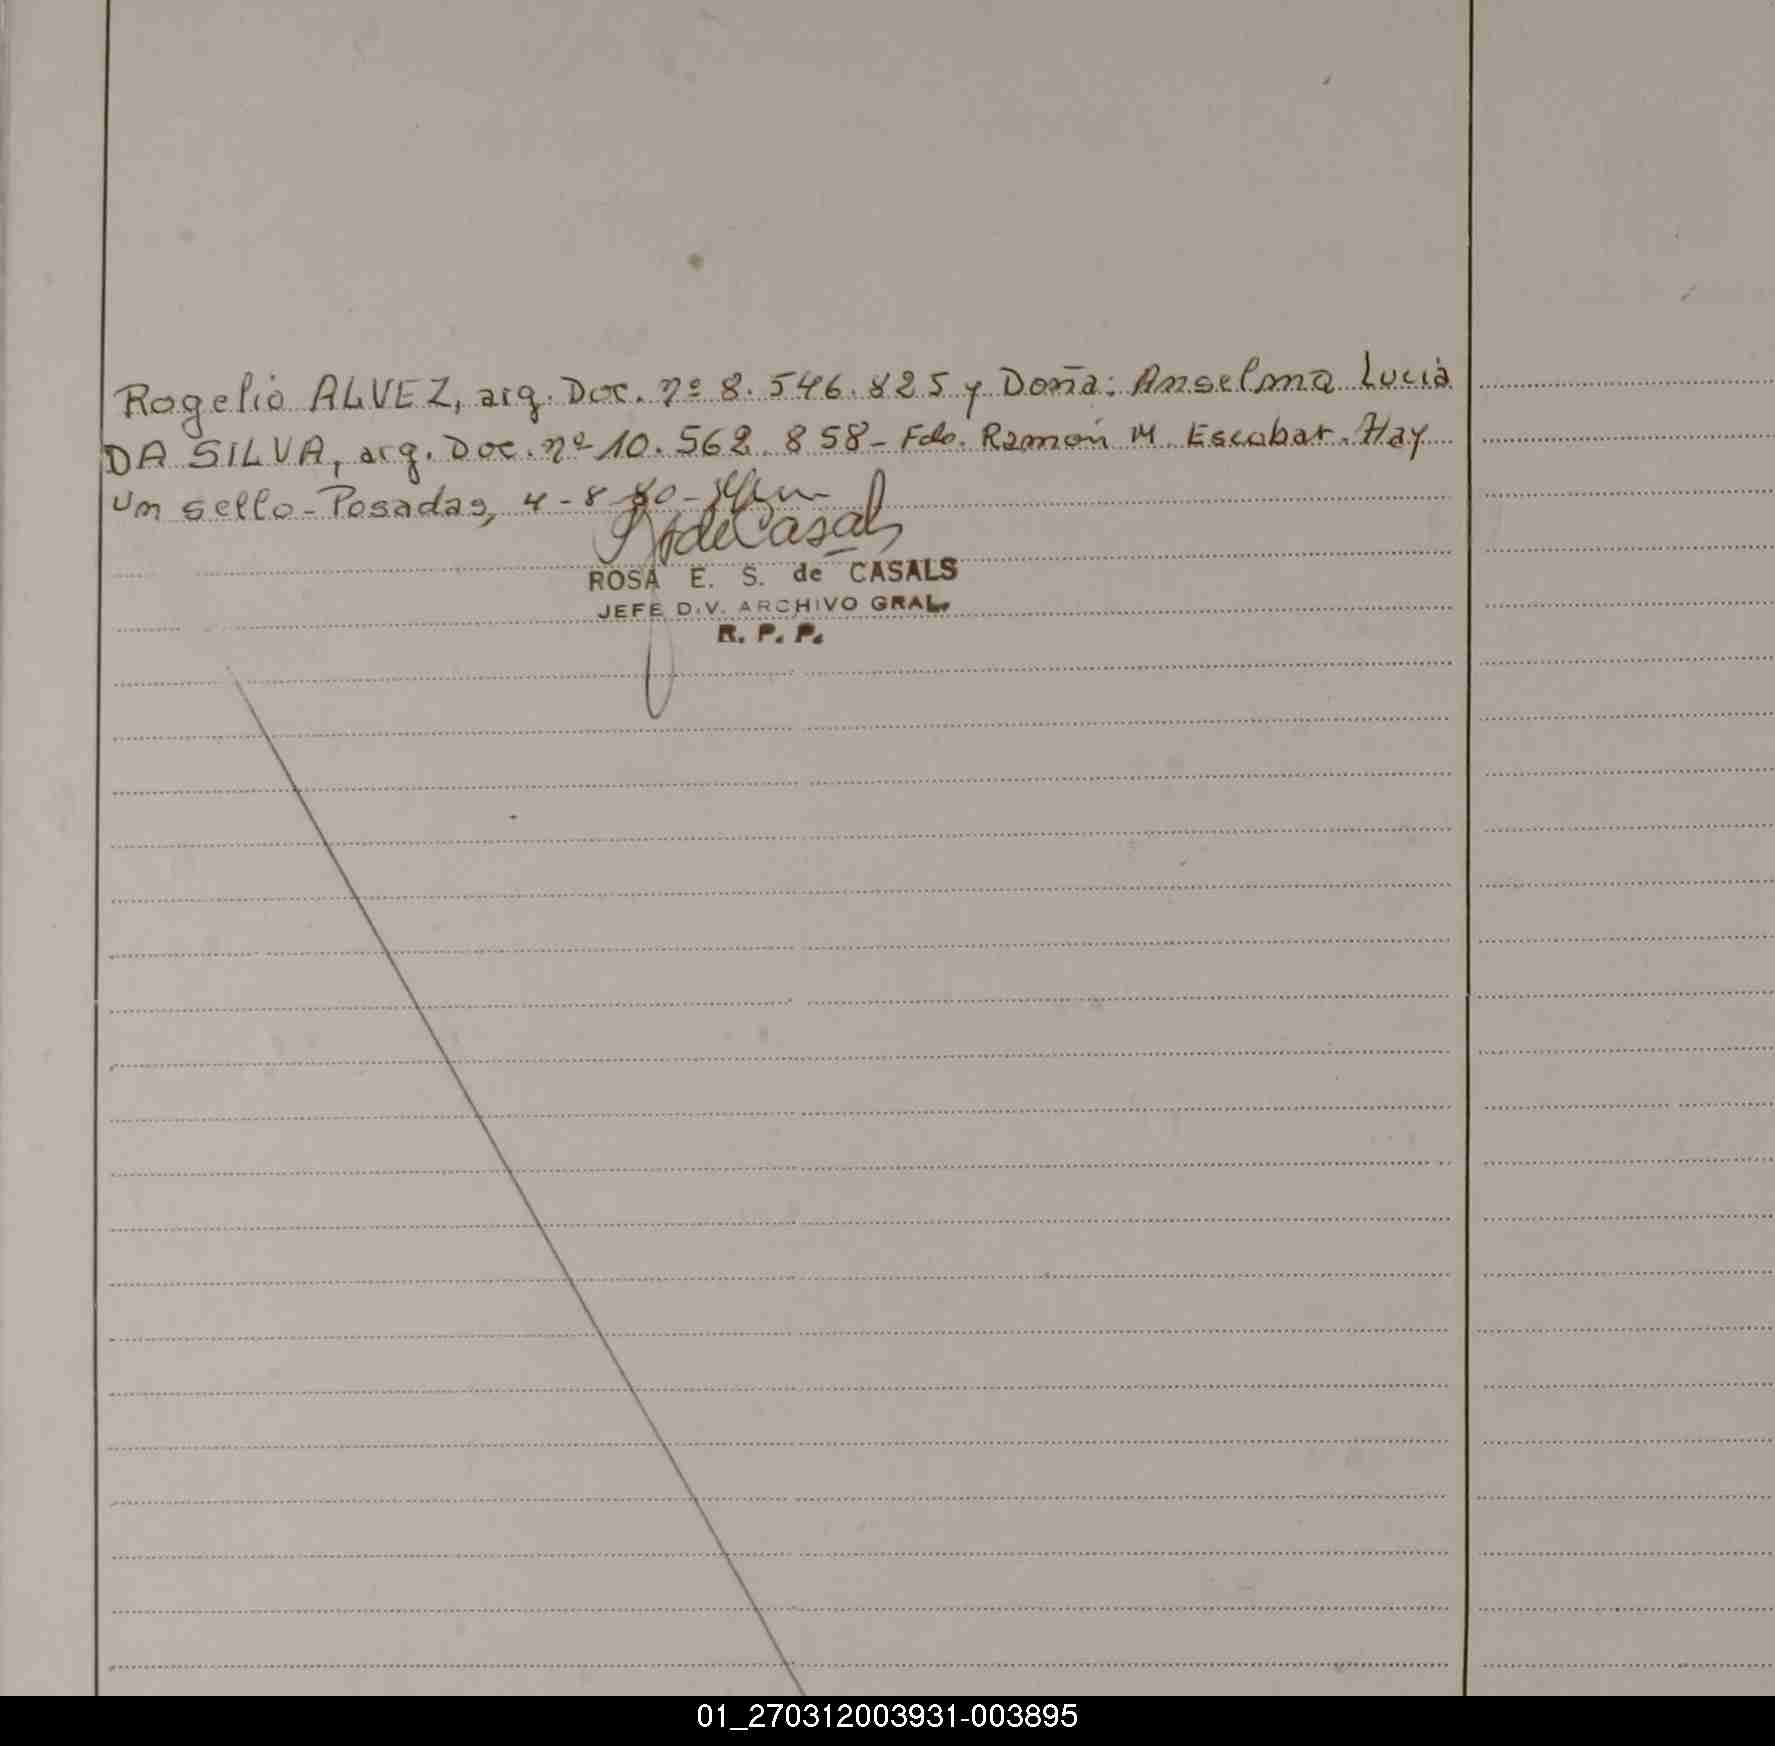 Rogelio ALVEZ, arg. Doc. nº 8.546.825 y Doña: Anselma Lucia
DA SILVA, arg. Doc. nº 10.562.858- Fdo. Ramón M. Escobar. Hay
un sello- Posadas, 4-8-80-
ROSA E. S. de CASALS
JEFE DIV. ARCHIVO GRAL.
R. P. P.
01_270312003931-003895